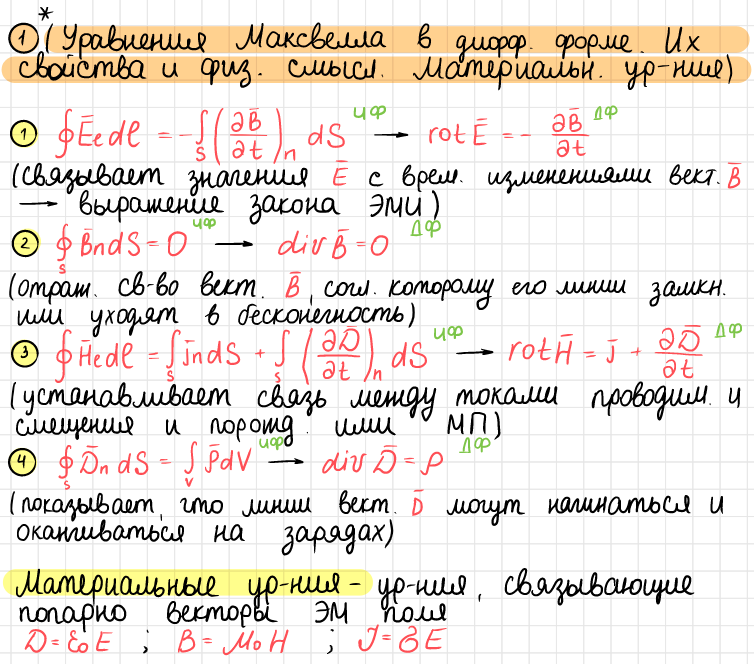 *
① (Уравнения Максвелла в дифф. форме. Их
свойства и физ. смысл. Материальн. ур-ния)
① ∮E̅ₑdl = -∫ₛ(∂B̅/∂t)ₙ dS ИФ → rotE̅ = - ∂B̅/∂t ДФ
(связывает значения E̅ с врем. изменениями вект. B̅
→ выражение закона ЭМИ)
② ∮ₛ B̅ndS = 0 ИФ → divB̅=0 ДФ
(отраж. св-во вект. B̅, согл. которому его линии замкн.
или уходят в бесконечность)
③ ∮H̅ₑdl = ∫ₛ j̅ndS + ∫ₛ (∂D̅/∂t)ₙ dS ИФ → rotH̅ = j̅ + ∂D̅/∂t ДФ
(устанавливает связь между токами проводим. и
смещения и порожд. ими МП)
④ ∮ₛ D̅n dS = ∫ᵥ ρ̅dV ИФ → div D̅ = ρ ДФ
(показывает, что линии вект. D̅ могут начинаться и
оканчиваться на зарядах)
Материальные ур-ния - ур-ния, связывающие
попарно векторы ЭМ поля
D=ε₀E ; B=μ₀H ; J=σE